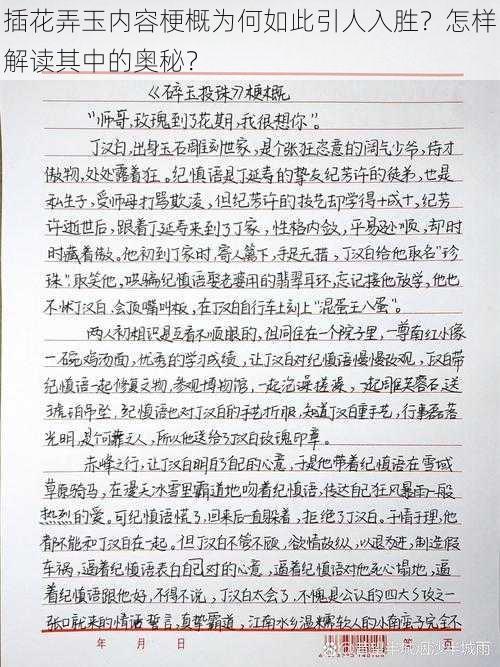 插花弄玉内容梗概为何如此引人入胜？怎样
解读其中的奥秘？
《碎玉投珠》梗概
“师哥，玫瑰到了花期，我很想你”。
丁汉白，出身玉石雕刻世家，是个张狂恣意的阔气少爷，恃才
傲物，处处露着狂。纪慎语是丁延寿的挚友纪芳许的徒弟，也是
私生子，受师母打骂欺凌，但纪芳许的技艺却学得十成十，纪芳
许逝世后，跟着丁延寿来到了丁家，性格内敛，平易处顺，却时
时藏着傲。他初到丁家时，寄人篱下，手足无措，丁汉白给他取名“珍
珠”取笑他，哄骗纪慎语娶老婆用的翡翠耳环，忘记接他放学，他也
不怵丁汉白，会顶嘴叫板，在丁汉白自行车上刻上“混蛋王八蛋”。
两人初相识是互看不顺眼的，但同住在一个院子里，一尊南红小像
一碗鸡汤面，优秀的学习成绩，让丁汉白对纪慎语慢慢改观，丁汉白带
纪慎语一起修复文物，参观博物馆，一起泡澡搓澡，一起雕芙蓉石，送
了琥珀吊坠，纪慎语也对丁汉白的手艺折服，知道丁汉白重手艺，行事磊落
光明，是个可靠之人，所以他送给了丁汉白玫瑰印章。
赤峰之行，让丁汉白明白了自己的心意，于是他带着纪慎语在雪域
草原骑马，在漫天冰雪里霸道地吻着纪慎语，传达自己狂风暴雨一般
热烈的爱。可纪慎语慌了，回来后一直躲着，拒绝了丁汉白。于情于理，他
都不能和丁汉白在一起。但丁汉白不管不顾，欲情故纵，以退为进，制造假
车祸，逼着纪慎语表白自己对的心意，逼着纪慎语对他死心塌地，逼着
纪慎语跟他好，不得不说，丁汉白太会了，不愧是公认的四大多攻之一
张口就来的情话誓言，真挚霸道，江南水乡温糯软人的小南蛮子完全不
年 月 日
第 页